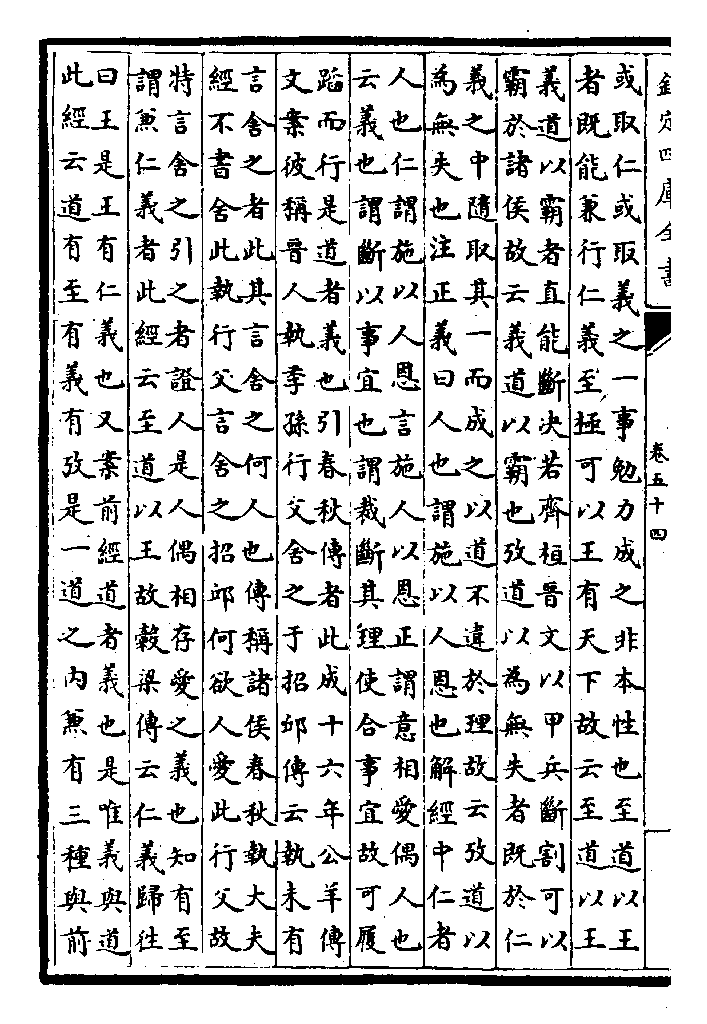 欽定四庫全書
卷五十四
或取仁或取義之一事勉力成之非本性也至道以王
者既能兼行仁義至極可以王有天下故云至道以王
義道以霸者直能斷决若齊桓晉文以甲兵斷割可以
霸於諸侯故云義道以霸也攷道以為無失者既於仁
義之中隨取其一而成之以道不違於理故云攷道以
為無失也注正義曰人也謂施以人恩也解經中仁者
人也仁謂施以人恩言施人以恩正謂意相愛偶人也
云義也謂斷以事宜也謂裁斷其理使合事宜故可履
蹈而行是道者義也引春秋傳者此成十六年公羊傳
文案彼稱晉人執季孫行父舍之于招邱傳云執未有
言舍之者此其言舍之何人也傳稱諸侯春秋執大夫
經不書舍此執行父言舍之招邱何欲人愛此行父故
特言舍之引之者證人是人偶相存愛之義也知有至
謂兼仁義者此經云至道以王故榖梁傳云仁義歸往
曰王是王有仁義也又案前經道者義也是唯義與道
此經云道有至有義有攷是一道之内兼有三種與前